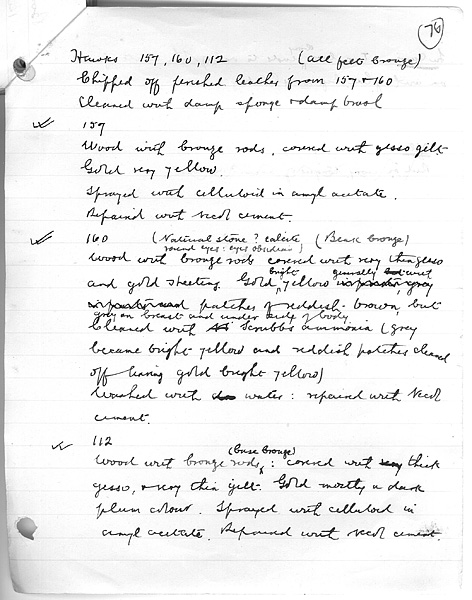 76
Hawks 157, 160, 112 (all feet bronze)
Chipped off perished leather from 157 + 160
Cleaned with damp sponge + damp brush
157
Wood with bronze rods, covered with gesso gilt
Gold very yellow.
Sprayed with celluloid in amyl acetate.
Repaired with Necol cement.
160 (Natural stone? calcite (Beak bronze)
round eyes: eyes obsidian)
Wood with bronze rods covered with very thin gesso
and gold sheeting. Gold bright yellow generally
patches of reddish-brown, but
grey on breast and under side of body
Cleaned with Scrubbs ammonia (grey
became bright yellow and reddish patches cleaned
off leaving gold bright yellow)
Washed with water: repaired with Necol
cement.
112
(base bronze)
Wood with bronze rods: covered with thick
gesso, + very thin gilt. Gold mostly a dark
plum colour. Sprayed with celluloid in
amyl acetate. Repaired with Necol cement.